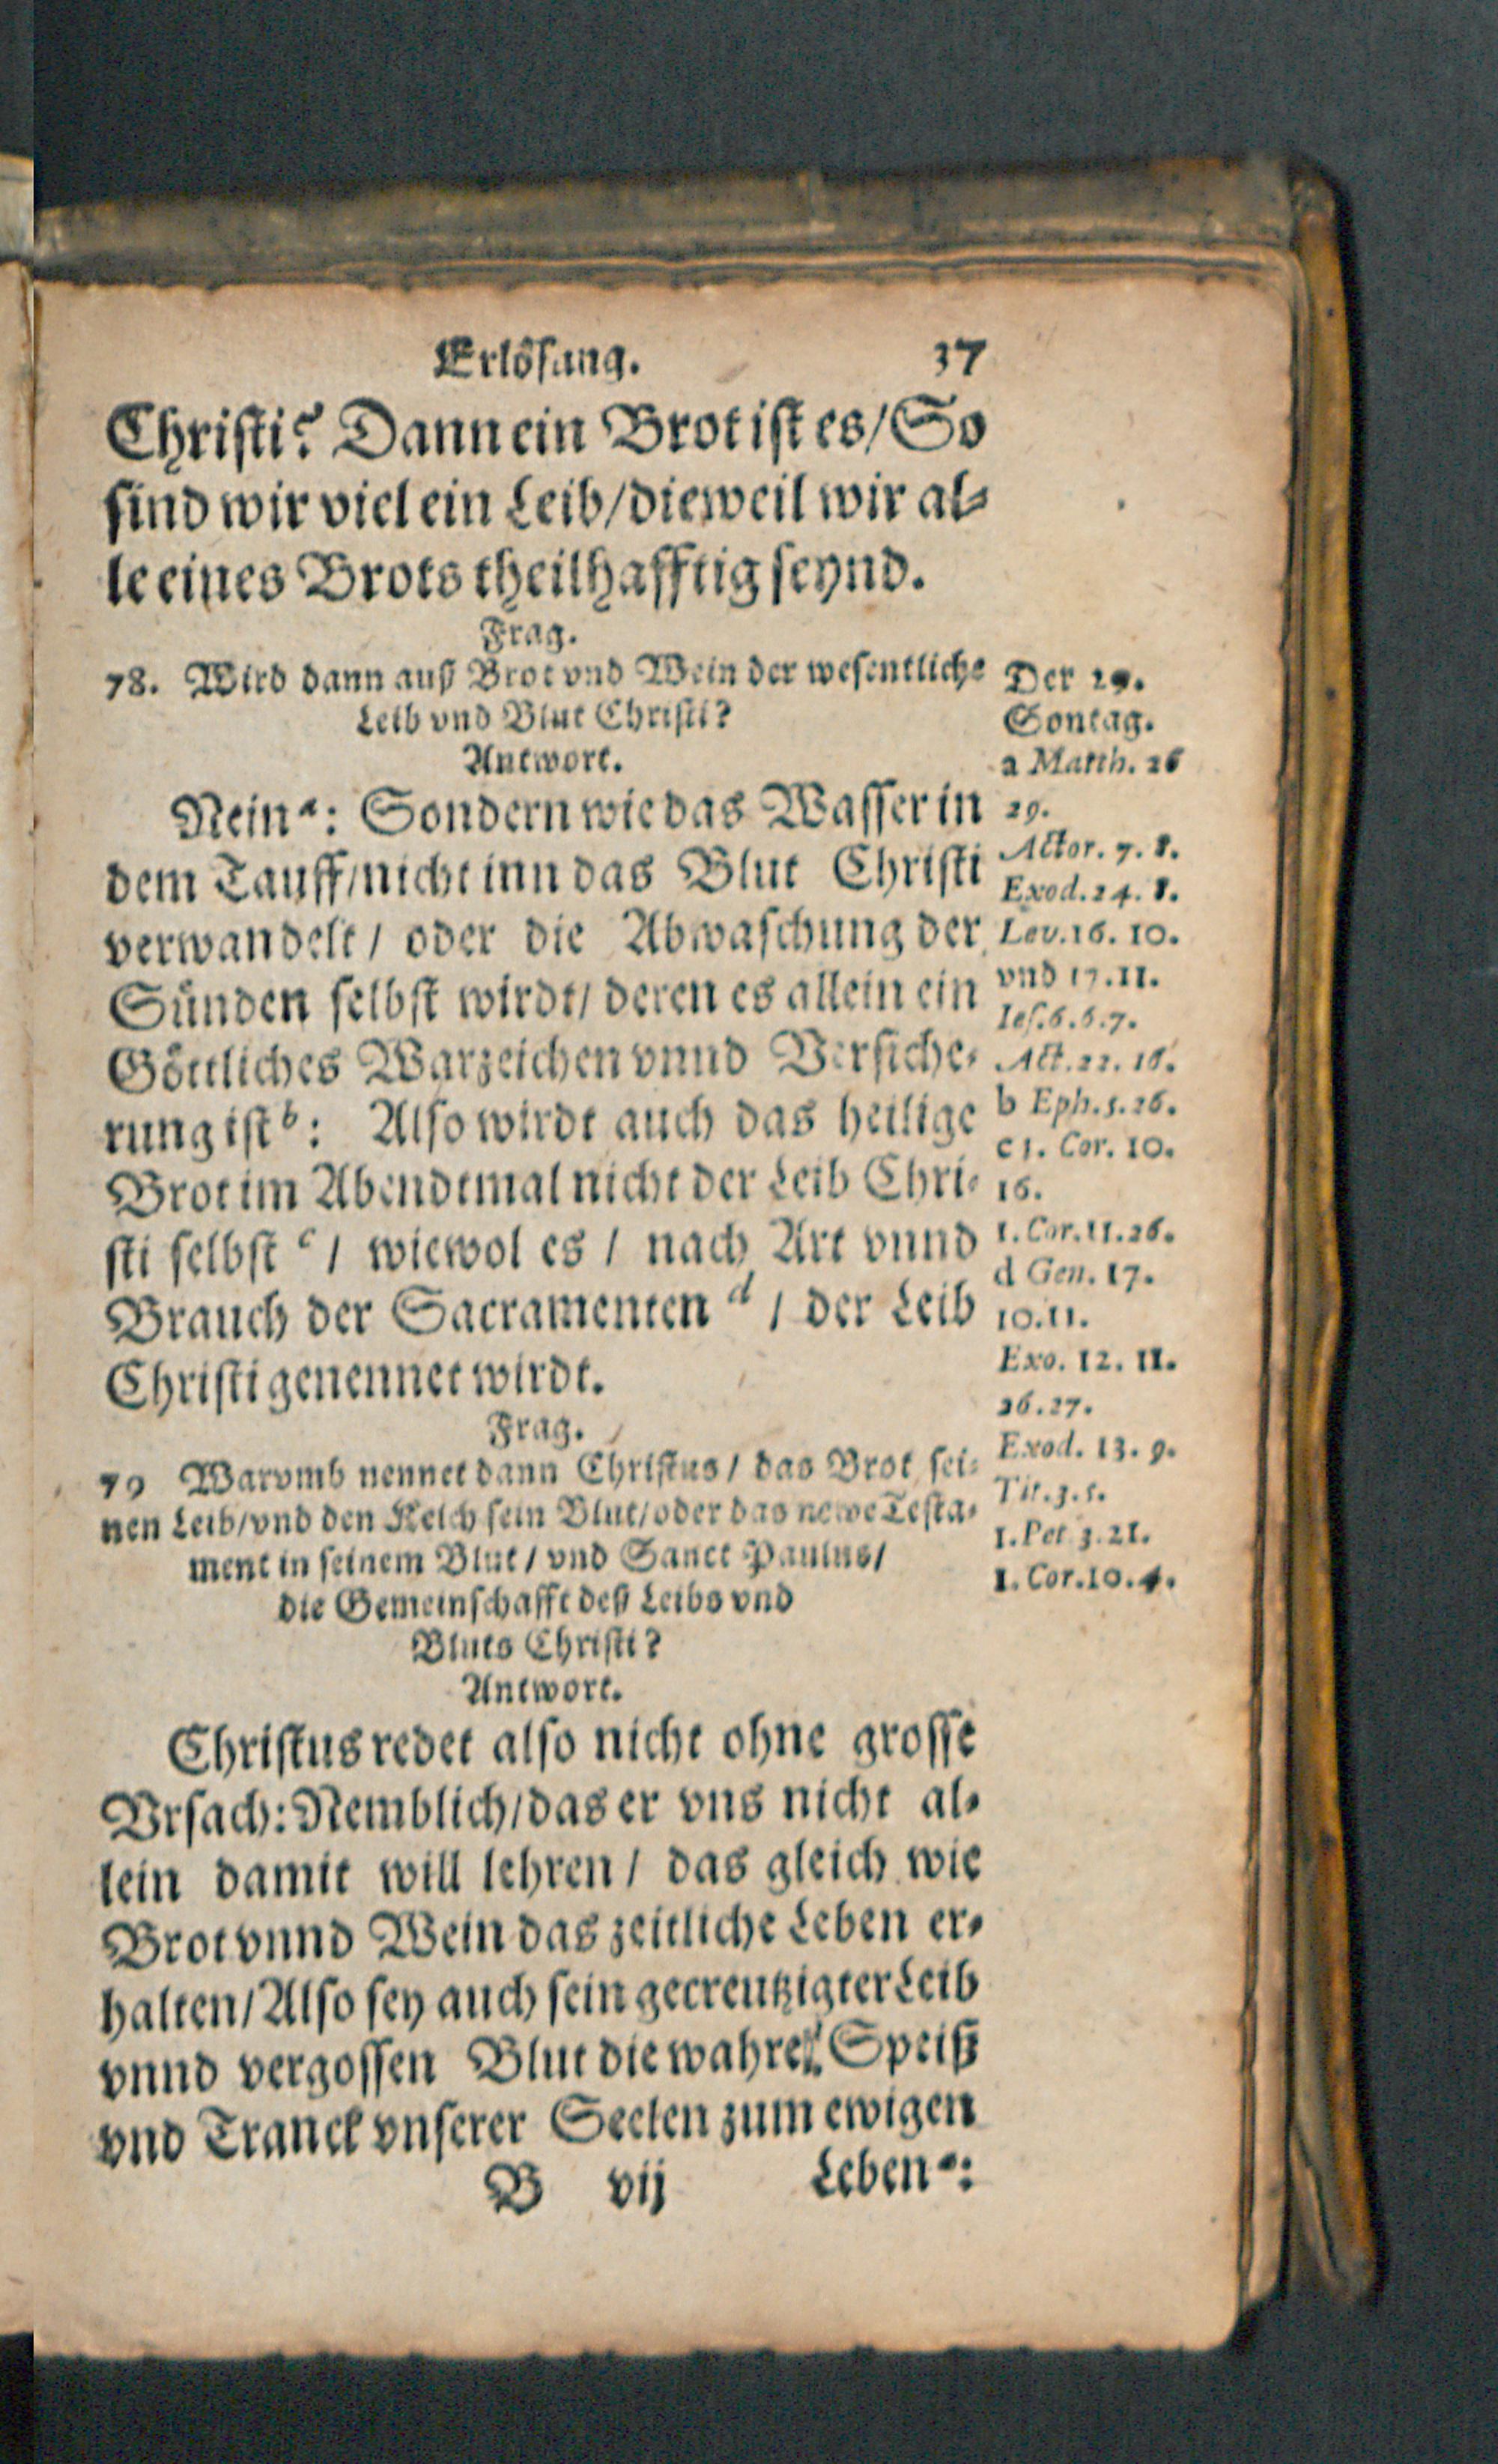 Erlösung. 37
Christi? Dann ein Brot ist es/ So
sind wir viel ein Leib/ dieweil wir al-
le eines Brots theilhafftig seynd.
Frag.
78. Wird dann auß Brot vnd Wein der wesentliche
Leib vnd Blut Christi?
Antwort.
Nein a: Sondern wie das Wasser in
dem Tauff/ nicht inn das Blut Christi
verwandelt/ oder die Abwaschung der
Sünden selbst wirdt/ deren es allein ein
Göttliches Warzeichen vnnd Versiche-
rung ist b: Also wirdt auch das heilige
Brot im Abendtmal nicht der Leib Chri-
sti selbst c/ wiewol es/ nach Art vnnd
Brauch der Sacramenten d/ der Leib
Christi genennet wirdt.
Frag.
79 Warumb nennet dann Christus/ das Brot sei-
nen Leib/ vnd den Kelch sein Blut/ oder das newe Testa-
ment in seinem Blut/ vnd Sanct Paulus/
die Gemeinschafft deß Leibs vnd
Bluts Christi?
Antwort.
Christus redet also nicht ohne grosse
Vrsach: Nemblich/ das er vns nicht al-
lein damit will lehren/ das gleich wie
Brot vnnd Wein das zeitliche Leben er-
halten/ Also sey auch sein gecreutzigter Leib
vnnd vergossen Blut die wahre Speiß
vnd Tranck vnserer Seelen zum ewigen
B vij Leben a:
Der 29.
Sontag.
a Matth. 26
29.
Actor. 7. 8.
Exod. 24. 8.
Lev. 16. 10.
vnd 17. 11.
Ies. 6. 6. 7.
Act. 22. 16.
b Eph. 5. 26.
c 1. Cor. 10.
16.
1. Cor. 11. 26.
d Gen. 17.
10. 11.
Exo. 12. 11.
26. 27.
Exod. 13. 9.
Tit. 3. 5.
1. Pet 3. 21.
1. Cor. 10. 4.